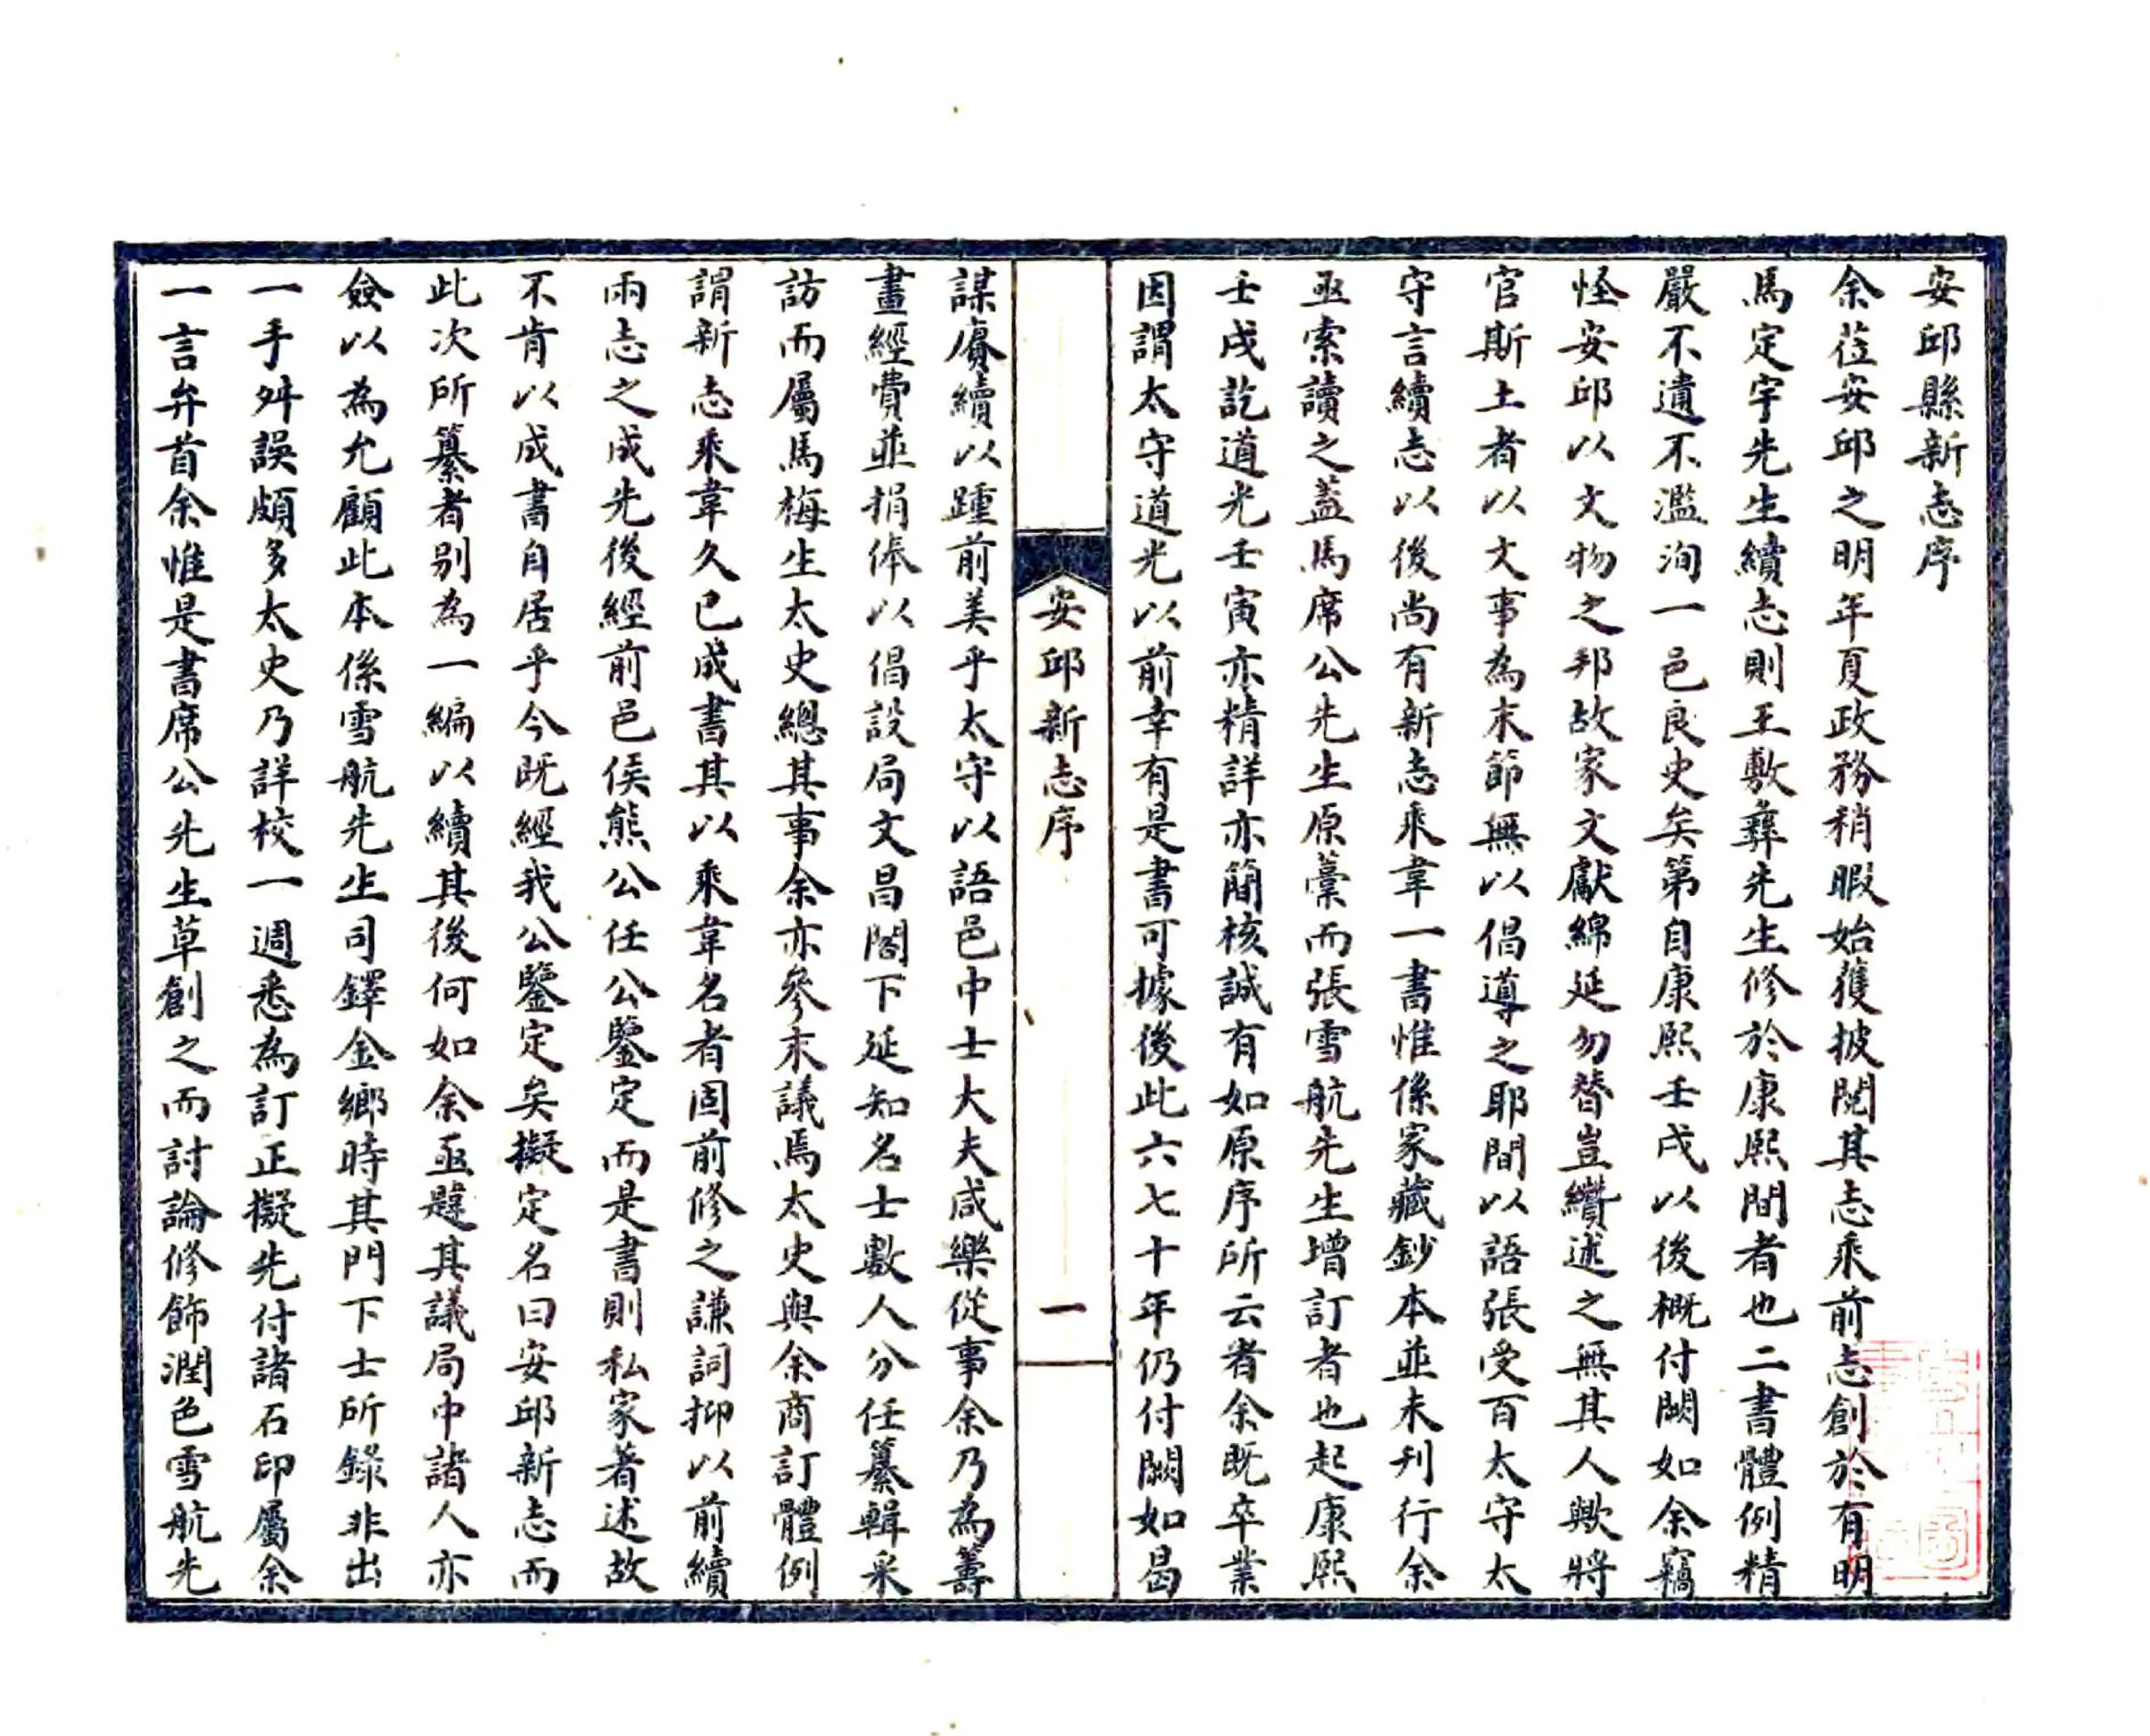 安邱縣新志序
余莅安邱之明年夏政務稍暇始獲披閱其志乘前志創於有明
馬定宇先生續志則王敷彝先生修於康熙間者也二書體例精
嚴不遺不濫洵一邑良史矣第自康熙壬戌以後概付闕如余竊
怪安邱以文物之邦故家文獻綿延勿替豈纘述之無其人歟將
官斯土者以文事為末節無以倡導之耶間以語張受百太守太
守言續志以後尚有新志乘韋一書惟係家藏鈔本並未刊行余
亟索讀之蓋馬席公先生原藁而張雪航先生增訂者也起康熙
壬戌訖道光壬寅亦精詳亦簡核誠有如原序所云者余既卒業
因謂太守道光以前幸有是書可據後此六七十年仍付闕如曷
安邱新志序
一
謀賡續以踵前美乎太守以語邑中士大夫咸樂從事余乃為籌
畫經費並捐俸以倡設局文昌閣下延知名士數人分任纂輯采
訪而屬馬梅生太史總其事余亦參末議焉太史與余商訂體例
謂新志乘韋久已成書其以乘韋名者固前修之謙詞抑以前續
兩志之成先後經前邑侯熊公任公鑒定而是書則私家著述故
不肯以成書自居乎今既經我公鑒定矣擬定名曰安邱新志而
此次所纂者別為一編以續其後何如余亟韙其議局中諸人亦
僉以為允顧此本係雪航先生司鐸金鄉時其門下士所錄非出
一手舛誤頗多太史乃詳校一週悉為訂正擬先付諸石印屬余
一言弁首余惟是書席公先生草創之而討論修飾潤色雪航先